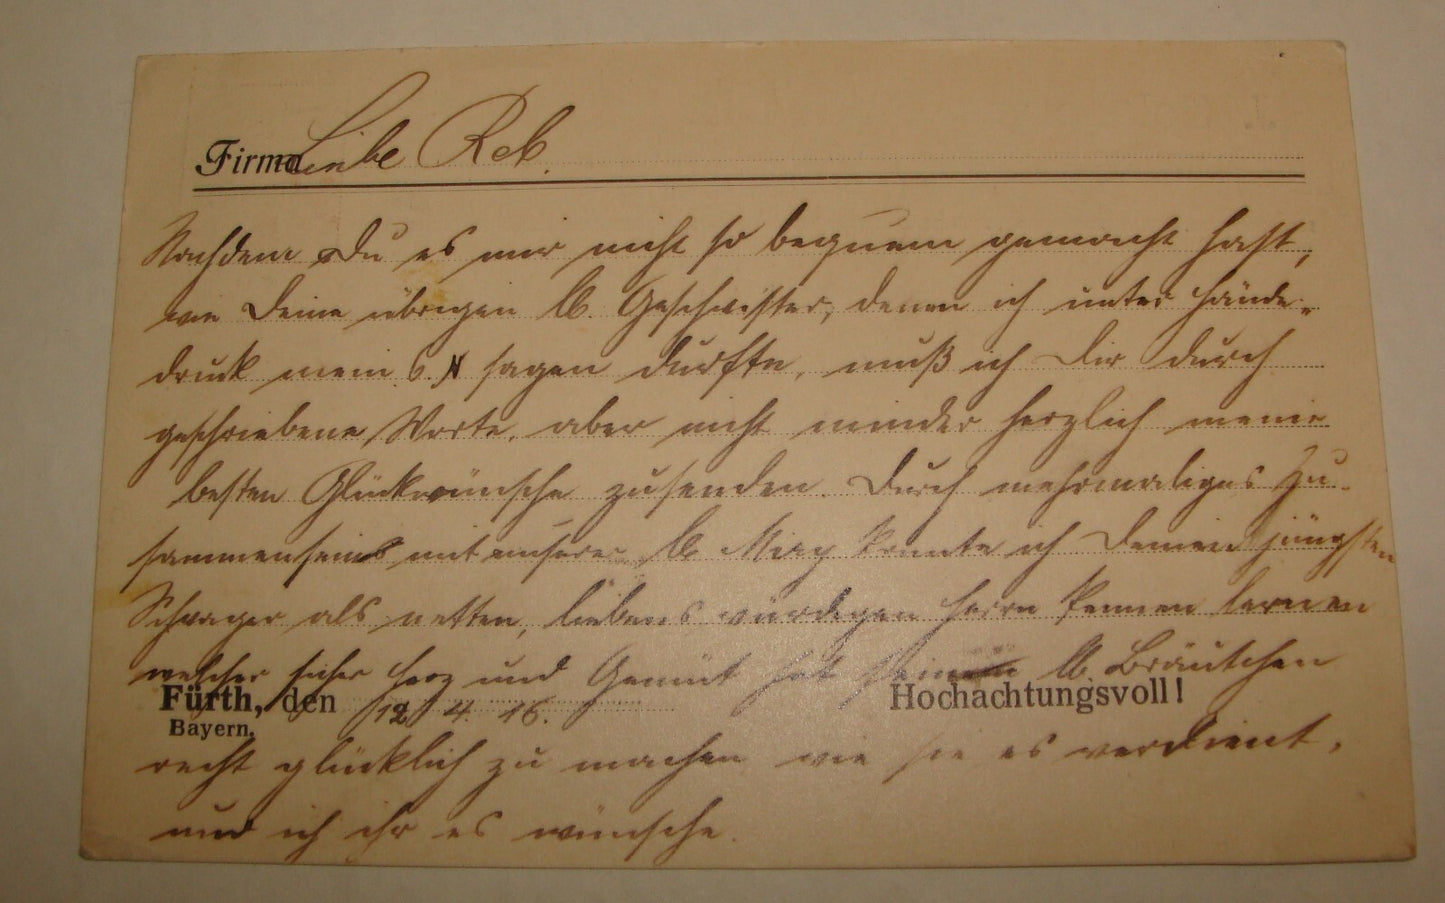 Firma Liebe Reb.
Nachdem Du es mir nicht so bequem gemacht hast,
wie Deine übrigen lb. Geschwister, denen ich unter Hände-
druck mein sagen durfte, muß ich Dir durch
geschriebene Worte, aber nicht minder herzlich meine
besten Glückwünsche zusenden. Durch mehrmaliges Zu-
sammensein mit unserer lb. konnte ich Deinen jüngsten
Schwager als netten, liebenswürdigen Herrn kennen lernen
welcher sicher Herz und Gemüt hat sein lb. Bräutchen
Fürth, den 12 4. 16. Hochachtungsvoll!
Bayern,
recht glücklich zu machen wie sie es verdient,
und ich ihr es wünsche.